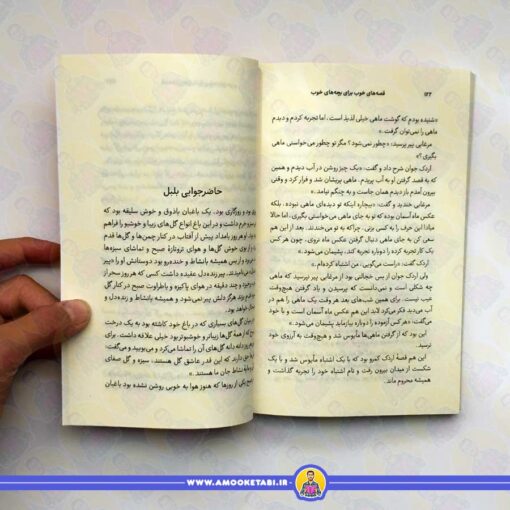 ۱۲۲
قصه‌های خوب برای بچه‌های خوب
«شنیده بودم که گوشت ماهی خیلی لذیذ است، اما تجربه کردم و دیدم
ماهی را نمی‌توان گرفت.»
مرغابی پیر پرسید: «چطور نمی‌شود؟ مگر تو چطور می‌خواستی ماهی
بگیری؟»
اردک جوان شرح داد و گفت: «یک چیز روشن در آب دیدم و همین
که به قصد گرفتن او به آب پریدم، ماهی پریشان شد و فرار کرد و وقتی
بیرون آمدم باز دیدم همان جاست و به چنگم نیامد.»
مرغابی خندید و گفت: «بیچاره اینکه تو دیده‌ای ماهی نبوده. بلکه
عکس ماه آسمان بوده که تو به جای ماهی می‌خواستی بگیری. اما حالا
مبادا این حرف را به کسی بزنی، چراکه به تو می‌خندند. بعد از این هم
سعی کن به جای ماهی دنبال گرفتن عکس ماه نروی. چون هر کس
یک کار تجربه کرده را دوباره تجربه کند، پشیمان می‌شود.»
اردک گفت: «راست می‌گویی، من اشتباه کرده‌ام.»
ولی اردک جوان از بس خجالتی بود از مرغابی پیر نپرسید که ماهی
چه شکلی است و نمی‌دانست که پرسیدن و یاد گرفتن هیچ‌وقت
عیب نیست. برای همین شب‌های بعد هر وقت یک ماهی را هم در
آب می‌دید فکر می‌کرد و لابد این هم عکس ماه آسمان است و با خود
می‌گفت: «هر کس آزموده را دوباره بیازماید پشیمان می‌شود.»
و همیشه مأیوس برمی‌گشت و هیچ‌وقت به آرزوی خود
نرسید.
این هم قصهٔ اردک کمرو بود که با یک اشتباه مأیوس شد و با یک
شکست از میدان بیرون رفت و نام اشتباه خود را تجربه گذاشت و
همیشه محروم ماند.
حاضرجوابی بلبل
بود و روزگاری بود. یک باغبان باذوق و خوش سلیقه بود که
و خرم داشت و در این باغ انواع گل‌های زیبا و خوشبو را فراهم
او هر روز بامداد پیش از آفتاب در کنار چمن‌ها و گل‌ها قدم
خوش گل‌ها و هوای تروتازهٔ صبح و تماشای سبزه‌ها
و از بس همیشه بانشاط و خنده‌رو بود دوستانش او را «پیر
می‌نامیدند. پیر زنده‌دل عقیده داشت کسی که هر روز سحر از
و چند دقیقه در هوای پاکیزه و باطراوت صبح در کنار گل
قدم بزند هرگز دلش پیر نمی‌شود و همیشه بانشاط و زنده‌دل و
خواهد بود.
میان گل‌های بسیاری که در باغ خود کاشته بود به یک درخت
از همهٔ گل‌ها زیباتر و خوشبوتر بود خیلی علاقه داشت.
روز دانه دانه گل‌های آن را تماشا می‌کرد و می‌بویید و می‌گفت:
حق دارند که این قدر عاشق گل هستند.
مایهٔ نشاط جان ما هستند.»
صبح یکی از روزها که هنوز هوا به خوبی روشن نشده بود باغبان
WWW.AMOOKETABI.IR